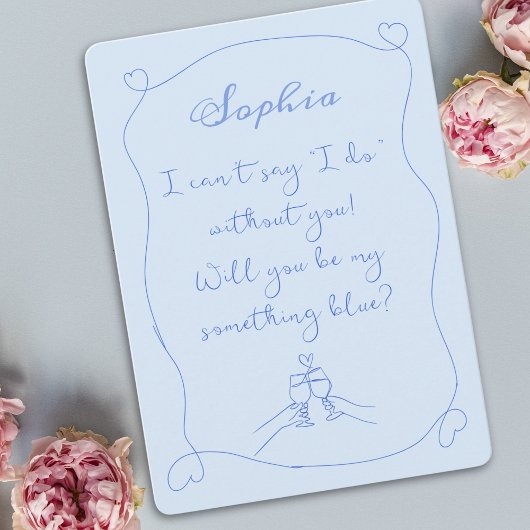 Sophia
I can't say "I do"
without you!
Will you be my
something blue?